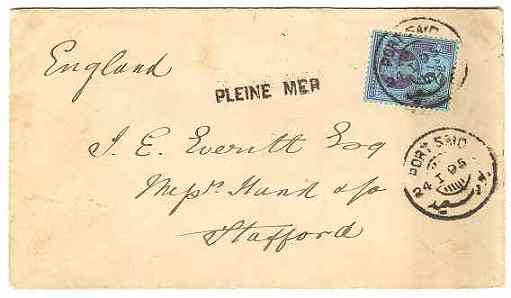 England
PLEINE MER
PORT SAID
J. E. Everitt Esq
Messrs Hand & Co
Stafford
PORT SAID
24 I 95
بور سعيد